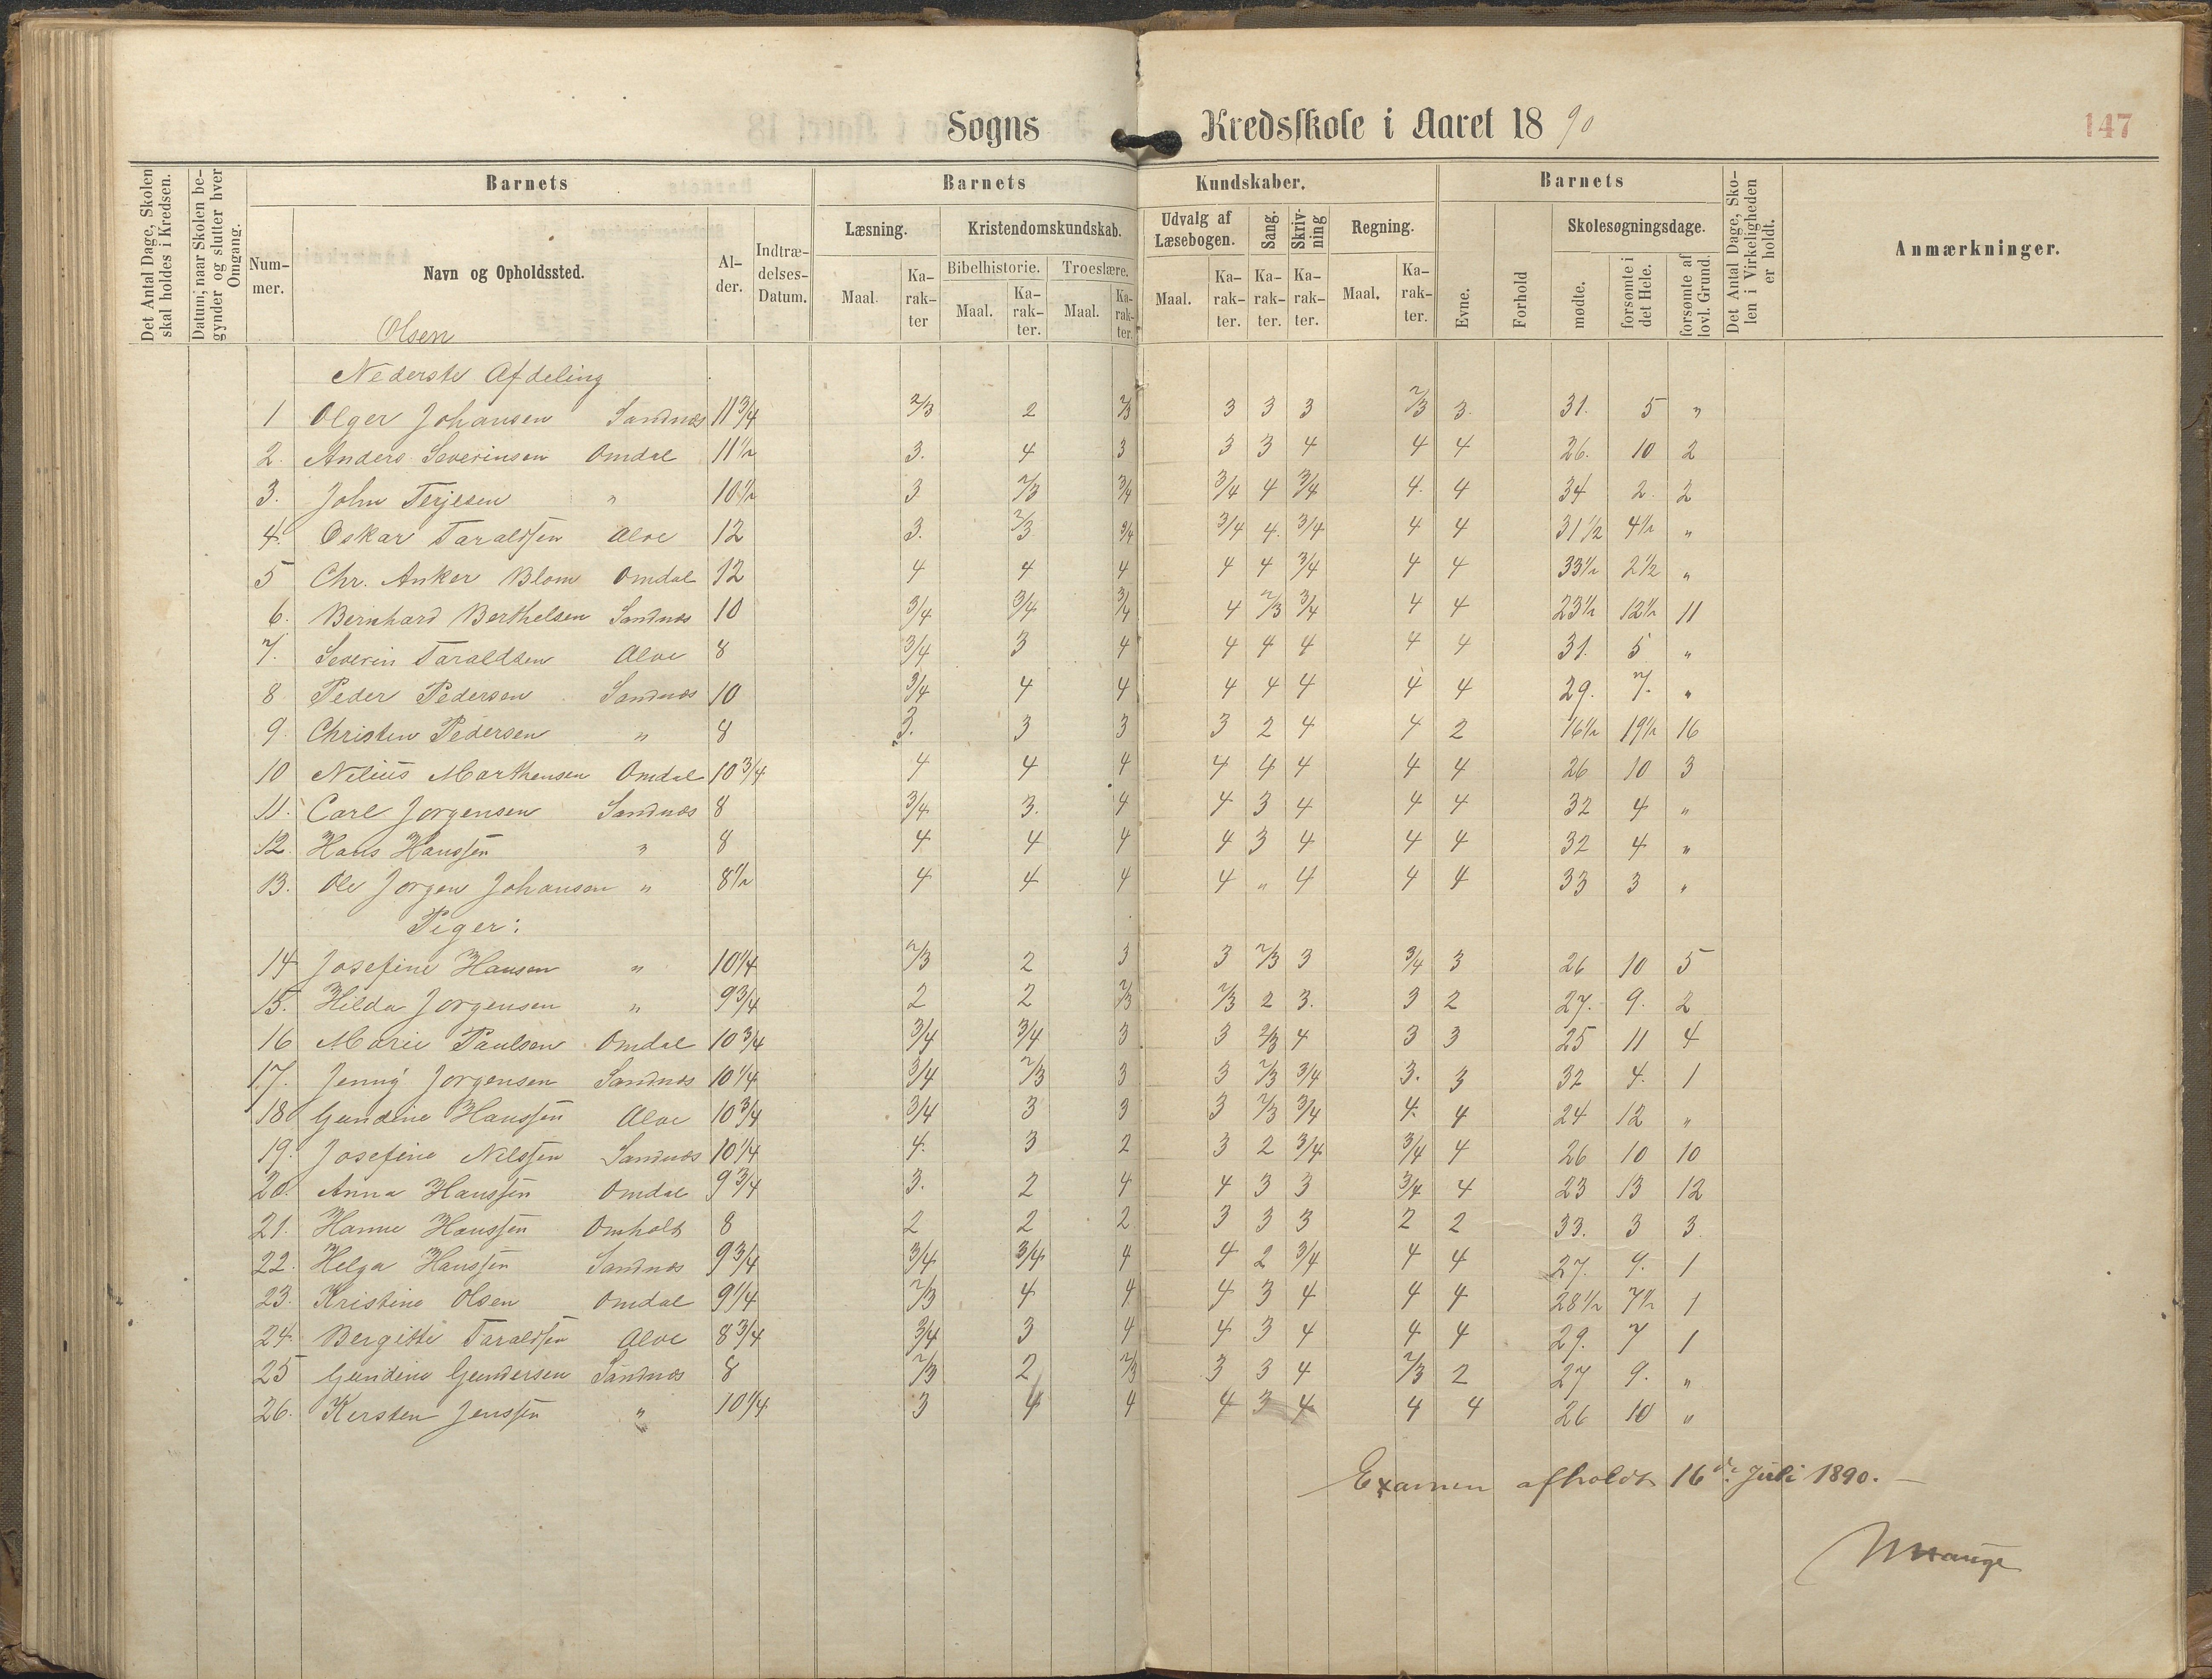 Sogns Kredsskole i Aaret 1890 147
Det Antal Dage, Skolen skal holdes i Kredsen.
Datum, naar Skolen begynder og slutter hver Omgang.
Barnets Barnets Kundskaber. Barnets
Det Antal Dage, Skolen i Virkeligheden er holdt.
Anmærkninger.
Nummer. Navn og Opholdssted. Alder. Indtrædelses-Datum.
Læsning. Kristendomskundskab. Udvalg af Læsebogen. Sang. Skrivning Regning. Evne. Forhold Skolesøgningsdage.
Bibelhistorie. Troeslære.
Maal. Karakter Maal. Karakter. Maal. Karakter. Maal. Karakter. Karakter. Karakter. Maal. Karakter. mødte. forsømte i det Hele. forsømte af lovl. Grund.
Olsen
Nederste Afdeling
1 Olger Johansen Sandnæs 11 3/4 2/3 2 2/3 3 3 3 2/3 3. 31. 5 "
2. Anders Severinsen Omdal 11 1/2 3. 4 3 3 3 4 4 4 26. 10 2
3. John Terjesen " 10 1/2 3 2/3 3/4 3/4 4 3/4 4. 4 34 2. 2
4. Oskar Taraldsen Alve 12 3. 2/3 3/4 3/4 4. 3/4 4 4 31 1/2 4 1/2 "
5 Chr. Anker Blom Omdal 12 4 4 4 4 4 3/4 4 4 33 1/2 2 1/2 "
6. Bernhard Berthelsen Sandnæs 10 3/4 3/4 3/4 4 2/3 3/4 4 4 23 1/2 12 1/2 11
7. Severin Taraldsen Alve 8 3/4 3 4 4 4 4 4 4 31. 5 "
8 Peder Pedersen Sandnæs 10 3/4 4 4 4 4 4 4 4 29. 7. "
9. Christen Pedersen " 8 3. 3 3 3 2 4 4 2 16 1/2 19 1/2 16
10 Nilius Marthensen Omdal 10 3/4 4 4 4 4 4 4 4 4 26 10 3
11. Carl Jorgensen Sandnæs 8 3/4 3. 4 4 3 4 4 4 32 4 "
12. Hans Hanssen " 8 4 4 4 4 3 4 4 4 32 4 "
13. Ole Jorgen Johansen " 8 1/2 4 4 4 4 " 4 4 4 33 3 "
Piger:
14 Josefine Hansen " 10 1/4 2/3 2 3 3 2/3 3 3/4 3 26 10 5
15. Hilda Jorgensen " 9 3/4 2 2 2/3 2/3 2 3. 3 2 27. 9. 2
16 Marie Paulsen Omdal 10 3/4 3/4 3/4 3 3 2/3 4 3 3 25 11 4
17. Jenny Jorgensen Sandnæs 10 1/4 3/4 2/3 3 3 2/3 3/4 3. 3 32 4. 1
18 Gundine Hanssen Alve 10 3/4 3/4 3 3 3 2/3 3/4 4. 4 24 12 "
19. Josefine Nilssen Sandnæs 10 1/4 4. 3 2 3 2 3/4 3/4 4 26 10 10
20. Anna Hanssen Omdal 9 3/4 3. 2 4 4 3 3 3/4 4 23 13 12
21. Hanne Hanssen Omholt 8 2 2 2 3 3 3 2 2 33. 3 3
22. Helga Hanssen Sandnæs 9 3/4 3/4 3/4 4 4 2 3/4 4 4 27. 9. 1
23. Kristine Olsen Omdal 9 1/4 2/3 4 4 4 3 4 4 4 28 1/2 7 1/2 1
24. Bergitte Taraldsen Alve 8 3/4 3/4 3 4 4 3 4 4 4 29. 7 1
25 Gundine Gundersen Sandnæs 8 2/3 2 2/3 3 3 4 2/3 2 27 9. "
26. Kersten Jenssen " 10 1/4 3 4 4 4 3 4 4 4 26 10 "
Examen afholdt 16de Juli 1890.